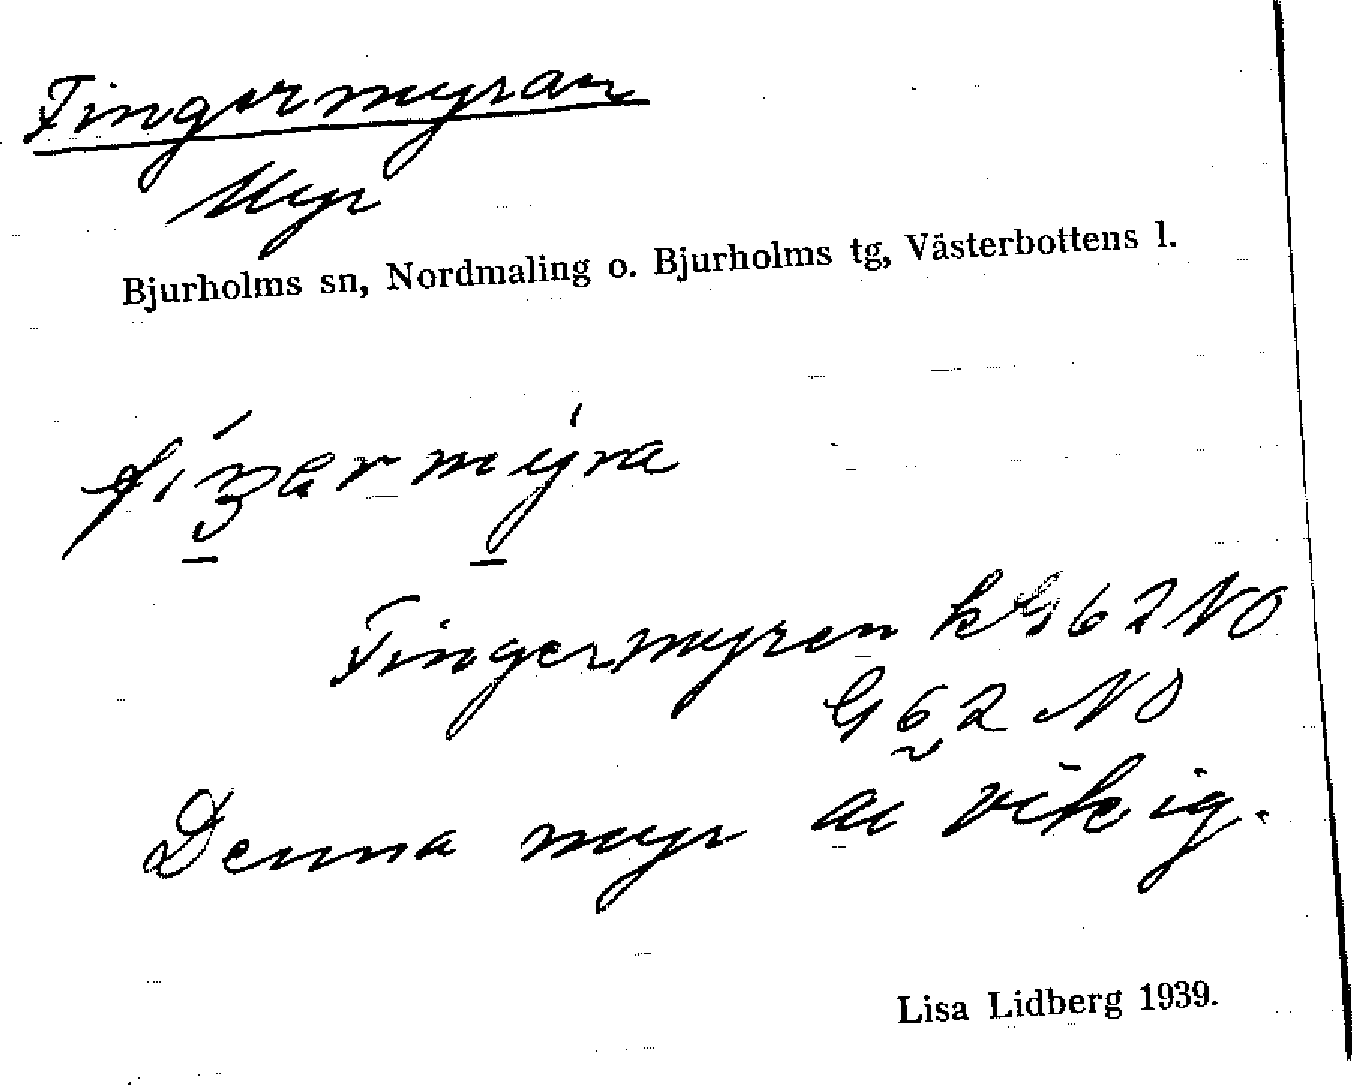 Fingermyran
Myr
Bjurholms sn, Nordmaling o. Bjurholms tg, Västerbottens l.
fíŋermýra
Fingermyren k G62NO
G62 NO
Denna myr är vikig.
Lisa Lidberg 1939.